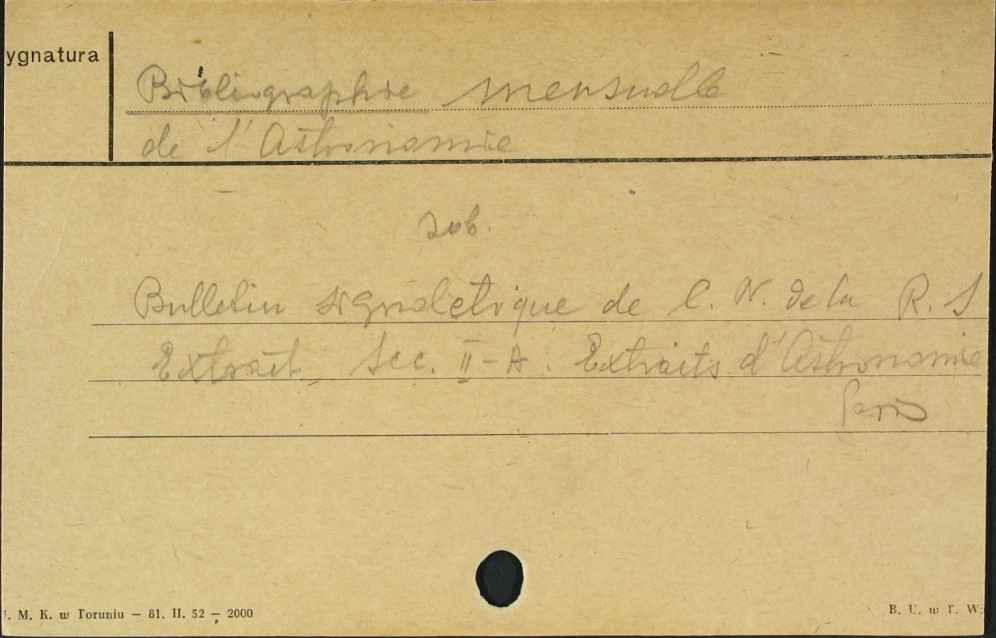 ygnatura
Bibliographie mensuelle
de l'Astronomie
zob.
Bulletin signaletique de C. N. de la R. S
Extrait Sec. II-A. Extraits d'Astronomie
Paris
. M. K. w Toruniu — 81. II. 52 — 2000
B. U. w T. W.